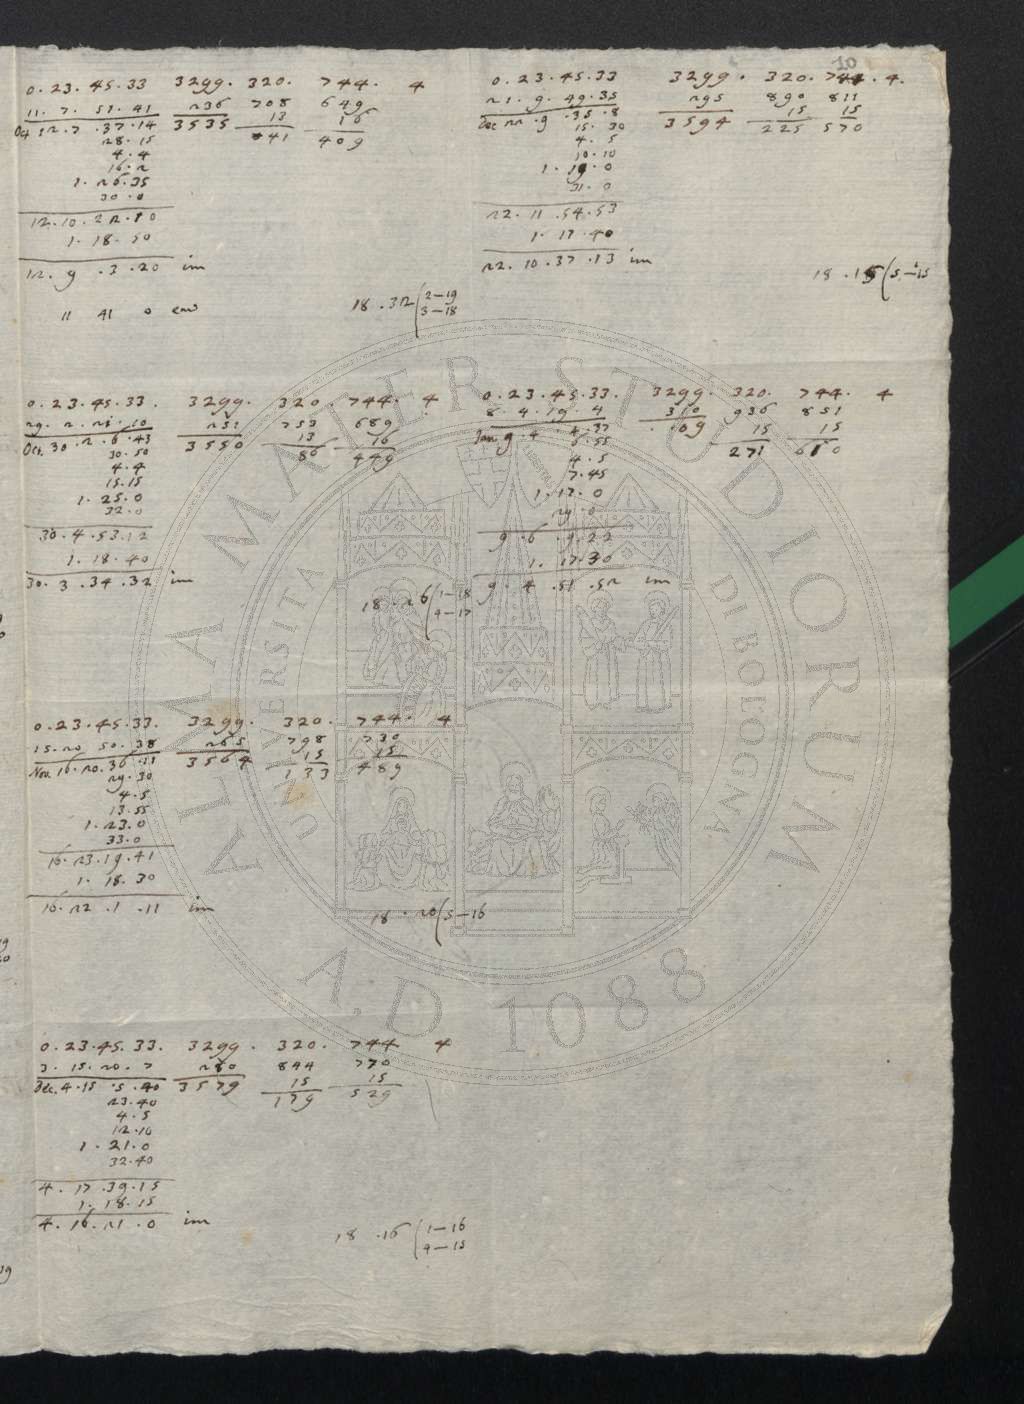 10
0. 23. 45. 33 3299. 320. 744. 4
11. 7. 51. 41 236 708 649
Oct 12. 7. 37. 14 3535 13 16
28. 15 41 409
4. 4
16. 2
1. 26. 35
30. 0
12. 10. 22. 10
1. 18. 50
12. 9. 3. 20 im
11 41 0
18. 32 (2—19
3—18
0. 23. 45. 33. 3299. 320. 744. 4
29. 2. 21. 10 251 753 689
Oct. 30. 2. 6. 43 3550 13 16
30. 50 86 449
4. 4
15. 15
1. 25. 0
32. 0
30. 4. 53. 12
1. 18. 40
30. 3. 34. 32 im
18. 26 (1—18
4—17
0. 23. 45. 33. 3299. 320. 744. 4
15. 20 50. 38 265 798 730
Nov. 16. 20. 36. 11 3564 15 15
29. 30 133 489
4. 5
13. 55
1. 23. 0
33. 0
16. 23. 19. 41
1. 18. 30
16. 22. 1. 11 im
18. 20 (5—16
0. 23. 45. 33. 3299. 320. 744 4
3. 15. 20. 7 280 844 770
Dec. 4. 15. 5. 40 3579 15 15
23. 40 179 529
4. 5
12. 10
1. 21. 0
32. 40
4. 17. 39. 15
1. 18. 15
4. 16. 21. 0 im
18. 16 (1—16
4—15
0. 23. 45. 33 3299. 320. 744. 4.
21. 9. 49. 35 295 890 811
Dec 22. 9. 35. 8 3594 15 15
15. 30 225 570
4. 5
10. 10
1. 19. 0
31. 0
22. 11. 54. 53
1. 17. 40
22. 10. 37. 13 im
18. 15 (5—15
0. 23. 45. 33. 3299. 320. 744. 4
8. 4. 19. 4 310 936 851
Jan 9. 4. 4. 37 09 15 15
6. 55 271 610
4. 5
7. 45
1. 17. 0
29. 0
9. 6. 9. 22
1. 17. 30
9. 4. 51. 52 im
ALMA MATER STUDIORUM
A.D. 1088
UNIVERSITA DI BOLOGNA